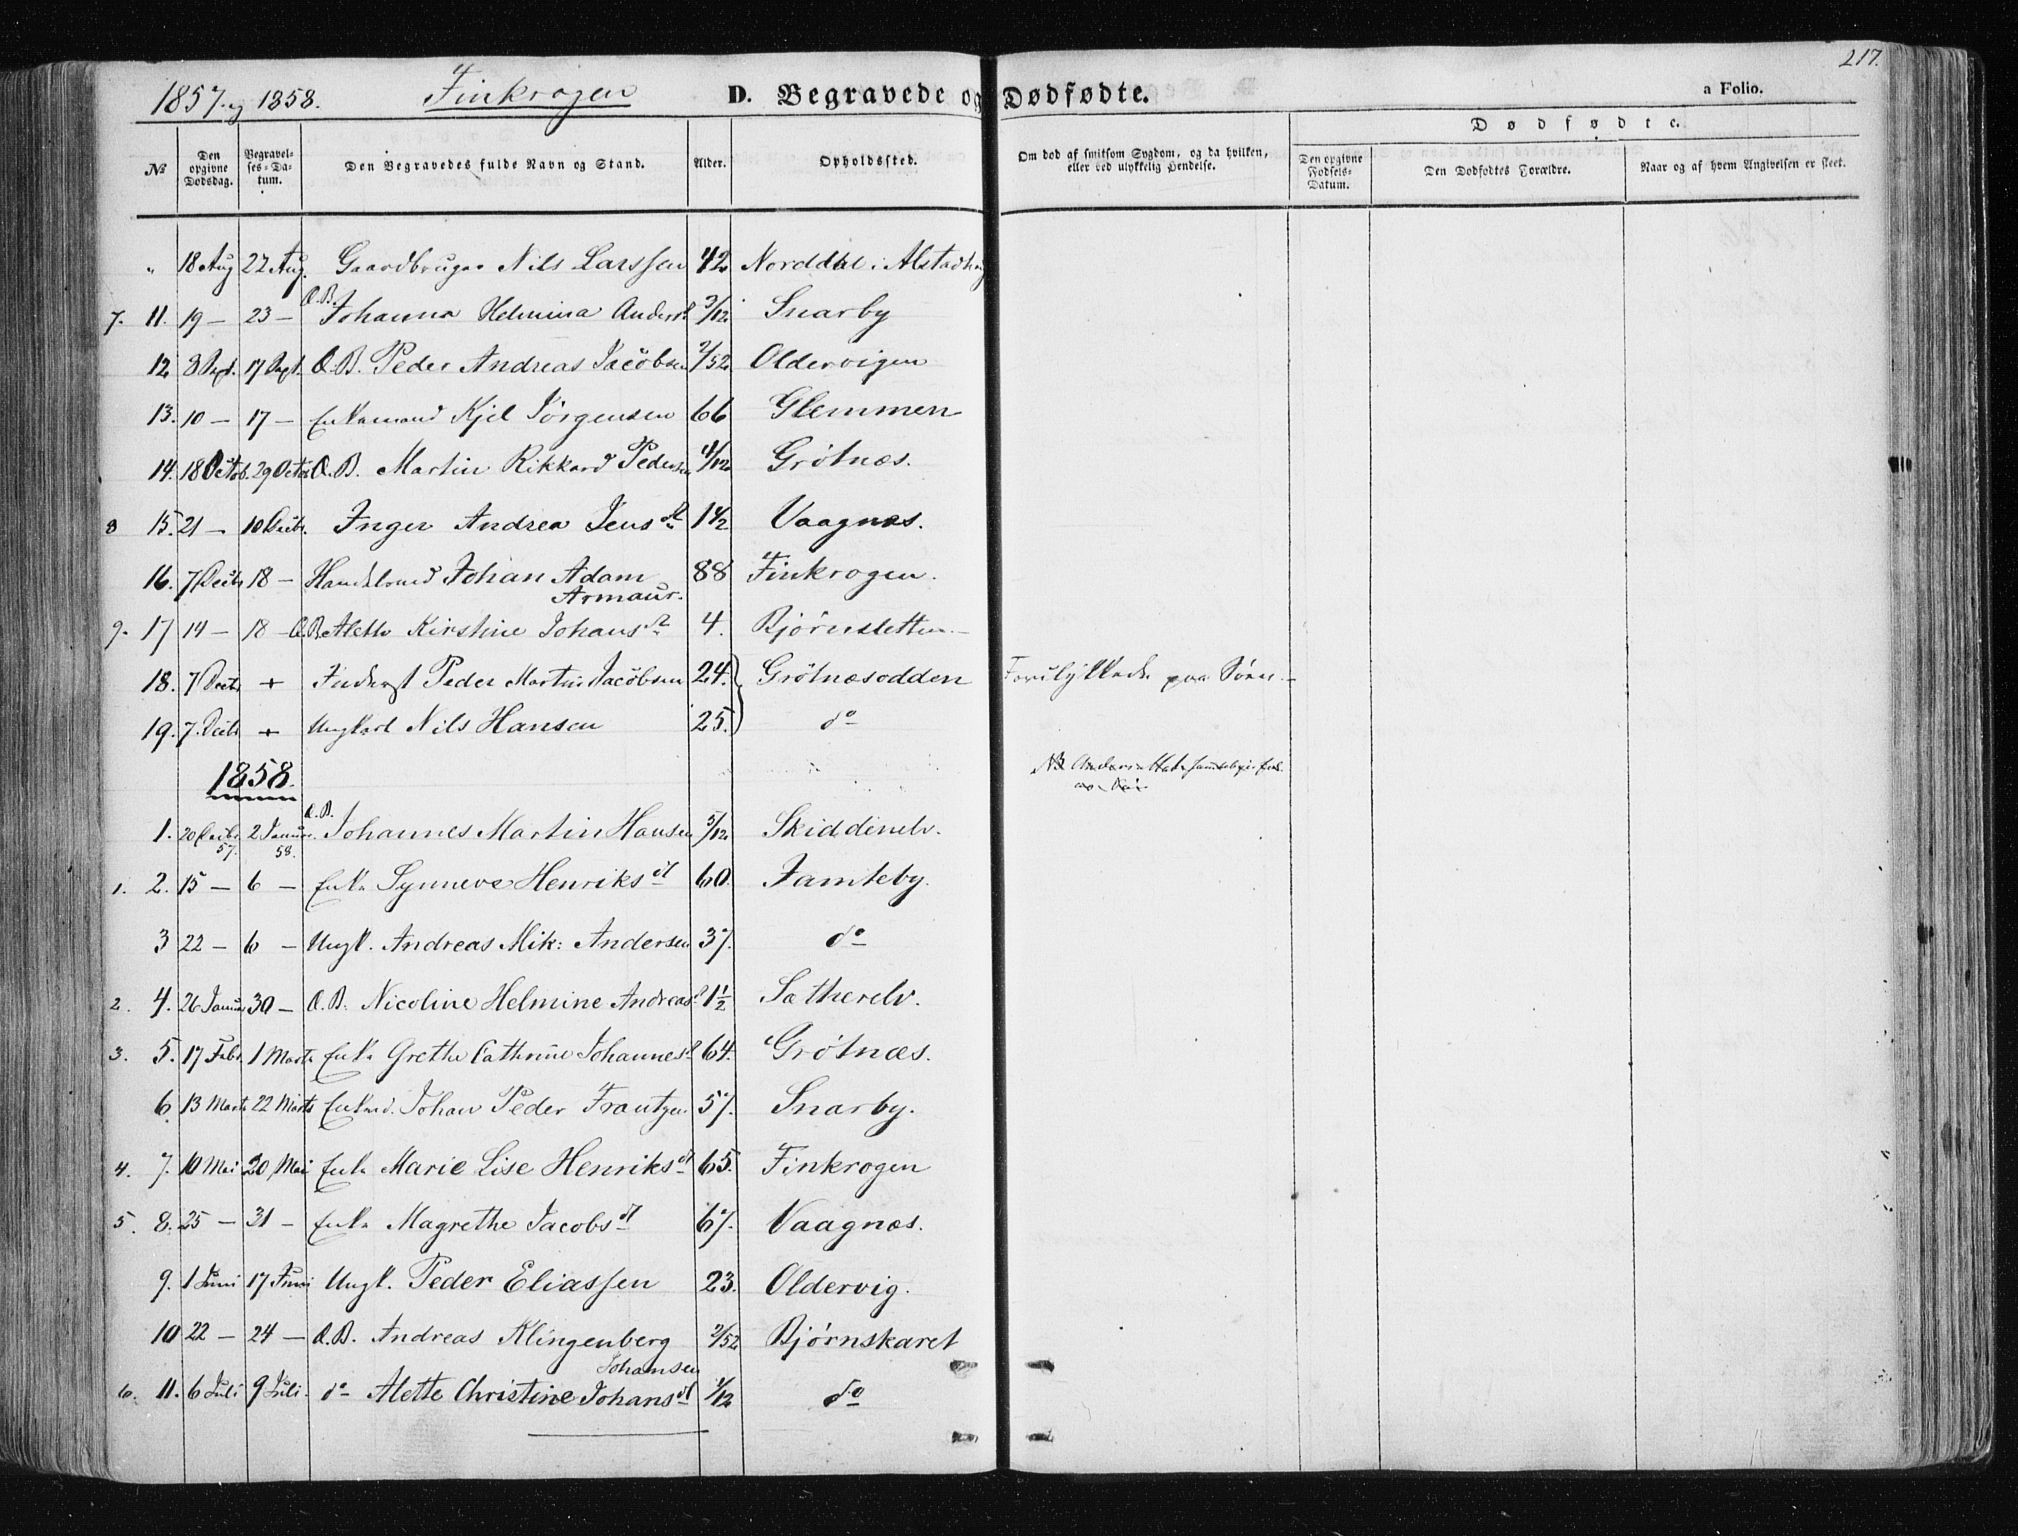 217.
1857. og 1858. Finkrogen D. Begravede og Dødfødte. a Folio.
Dødfødte.
No Den opgivne Dødsdag. Begravelses-Datum. Den Begravedes fulde Navn og Stand. Alder. Opholdssted. Om død af smitsom Sygdom, og da hvilken, eller ved ulykkelig Hendelse. Den opgivne Fødsels-Datum. Den Dødfødtes Forældre. Naar og af hvem Angivelsen er skeet.
" 18 Aug 22 Aug. Gaardbruger Nils Larssen 42 Norddal i Alstadhoug
7. 11. 19 — 23 — Q.B. Johanna Helmina Andersd 3/12 Snarby
12. 3 Sept. 17 Sept. Q.B. Peder Andreas Jacobsen 2/52 Oldervigen
13. 10 — 17 — Enkemand Kjel Jørgensen 66 Glemmen
14. 18 Octob. 29 Octob. Q.B. Martin Rikkard Pedersen 4/12 Grötnæs.
8 15. 21 — 10 Decbr. Inger Andrea Jensdt 1 1/2 Vaagnæs.
16. 7 Decbr 18 — Johan Adam Armaur. 88 Finkrogen.
9. 17 14 — 18 — Q.B. Alette Kirstine Johansdt 4. Bjørnsletten —
18. 7 Decbr + Inderst Peder Martin Jacobsen 24. Grötnæsodden Forulykkede paa Søen. —
19. 7. Decbr + Ungkarl Nils Hansen 25. do
1858.
NB Anders
1. 20 Decbr. 57. 2 Januar. 58. Q.B. Johannes Martin Hansen 5/12 Skiddenelv.
1. 2. 15 — 6 — Enke Synneve Henriksdt 60. Jamteby.
3 22 — 6 — Ungk. Andreas Mik: Andersen 37. do
2. 4. 26 Januar 30 — Q.B. Nicoline Helmine Andreasd 1 1/2 Satherelv.
3. 5. 17 Febr. 1 Marts Enke Grethe Cathrine Johannesd 64. Grötnæs.
6. 13 Marts 22 Marts Enkmd. Johan Peder Frantzen 57. Snarby.
4. 7. 10 Mai 20 Mai Enke Marie Lise Henriksdt 65. Finkrogen
5. 8. 25 — 31 — Enke Magrethe Jacobsdt 67. Vaagnæs.
9. 1 Juni 17 Juni Ungk. Peder Eliassen 23. Oldervig.
10 22 — 24 — Q.B. Andreas Klingenberg Johansen 2/52 Bjørnskaret
6. 11. 6 Juli 9 Juli. do Alette Christine Johansdt 1/12 do